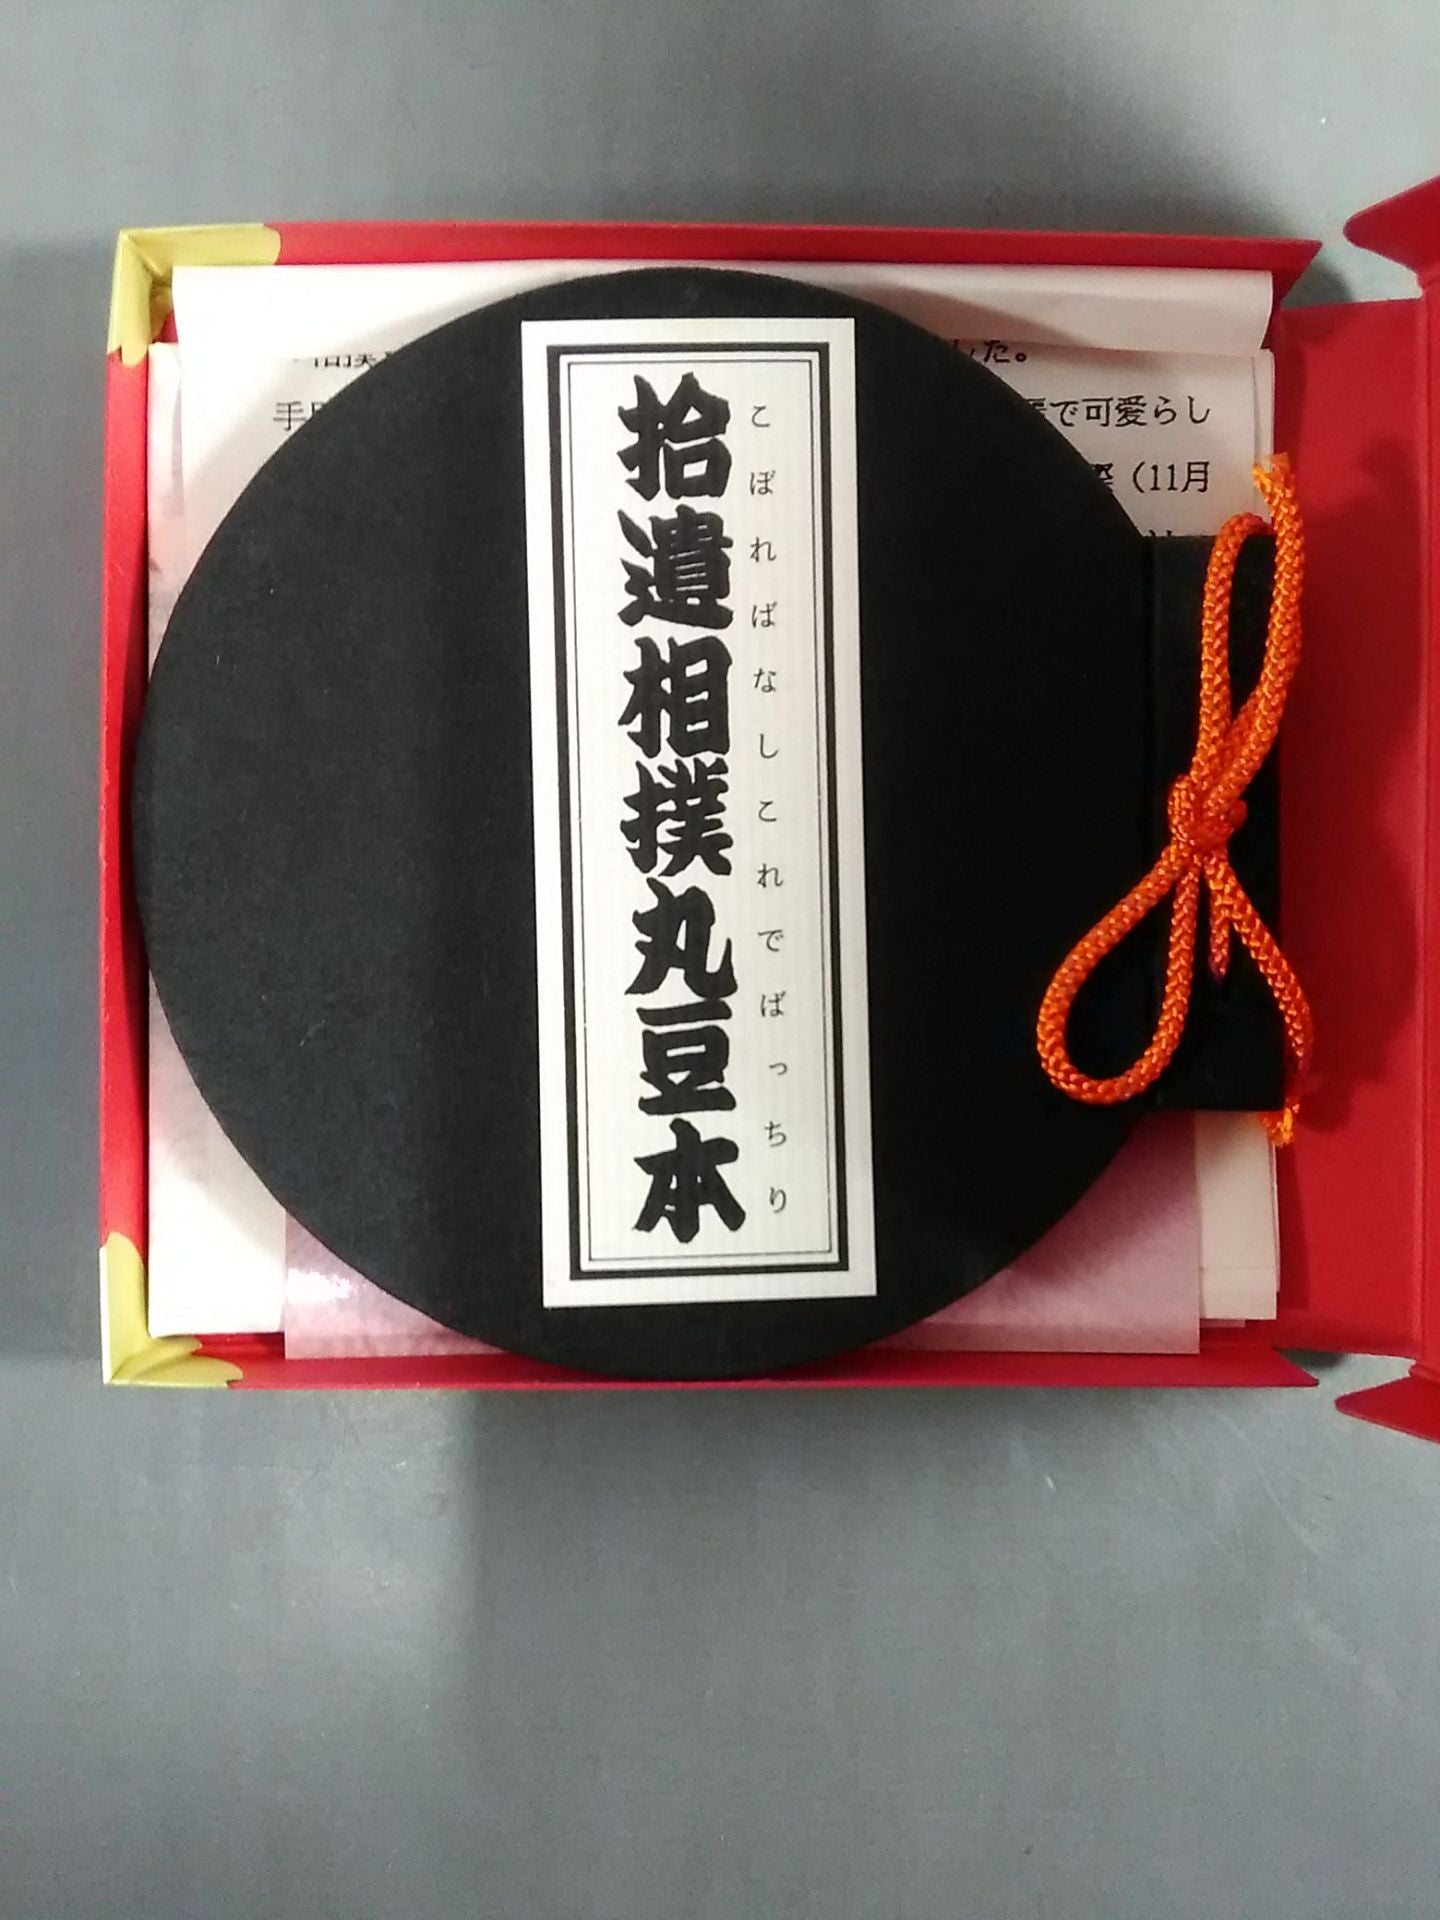 拾遺相撲丸豆本
こぼればなしこれでばっちり
した。
で可愛らし
（11月